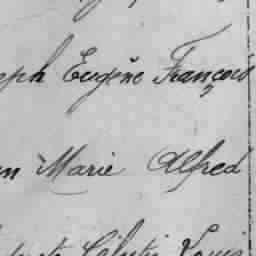 eph Eugène François
n Marie Alfred
Louis